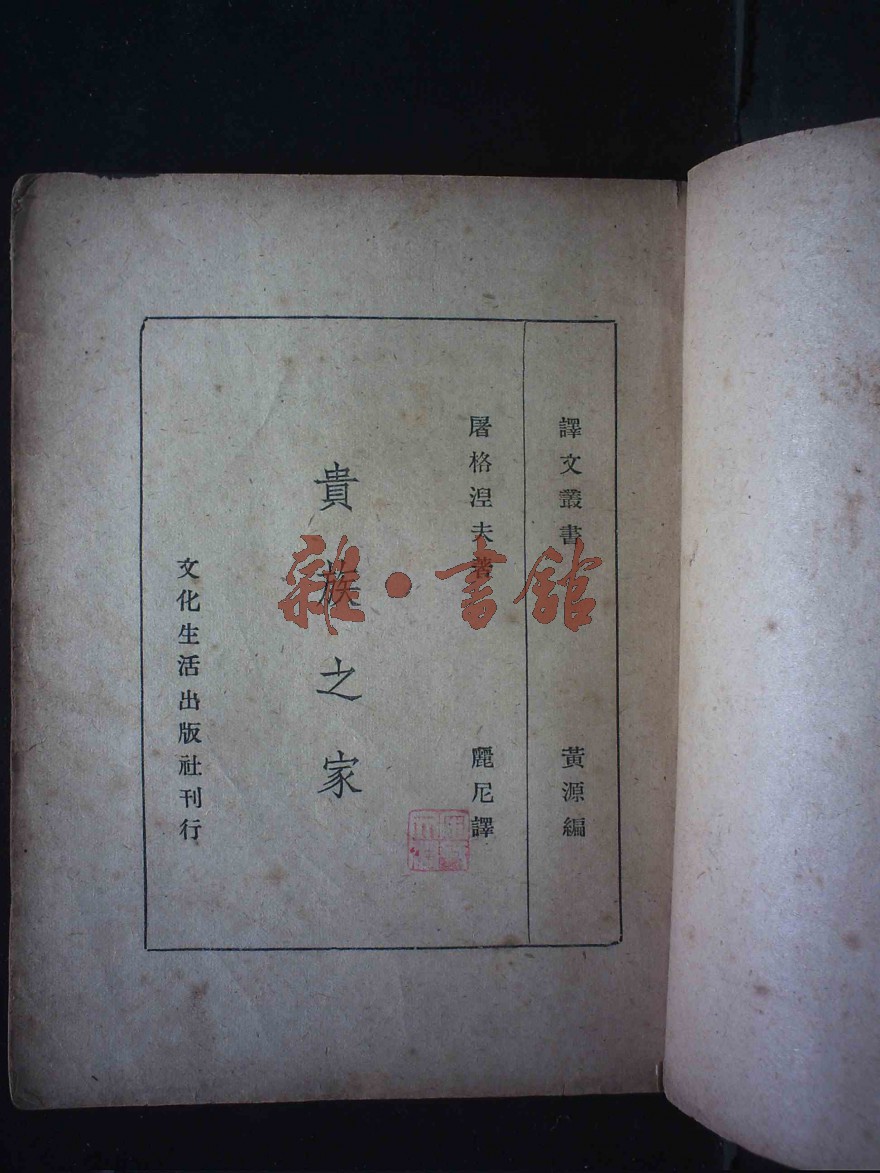 譯文叢書 黃源編
屠格湼夫著 麗尼譯
貴族之家
文化生活出版社刊行
雜·書館